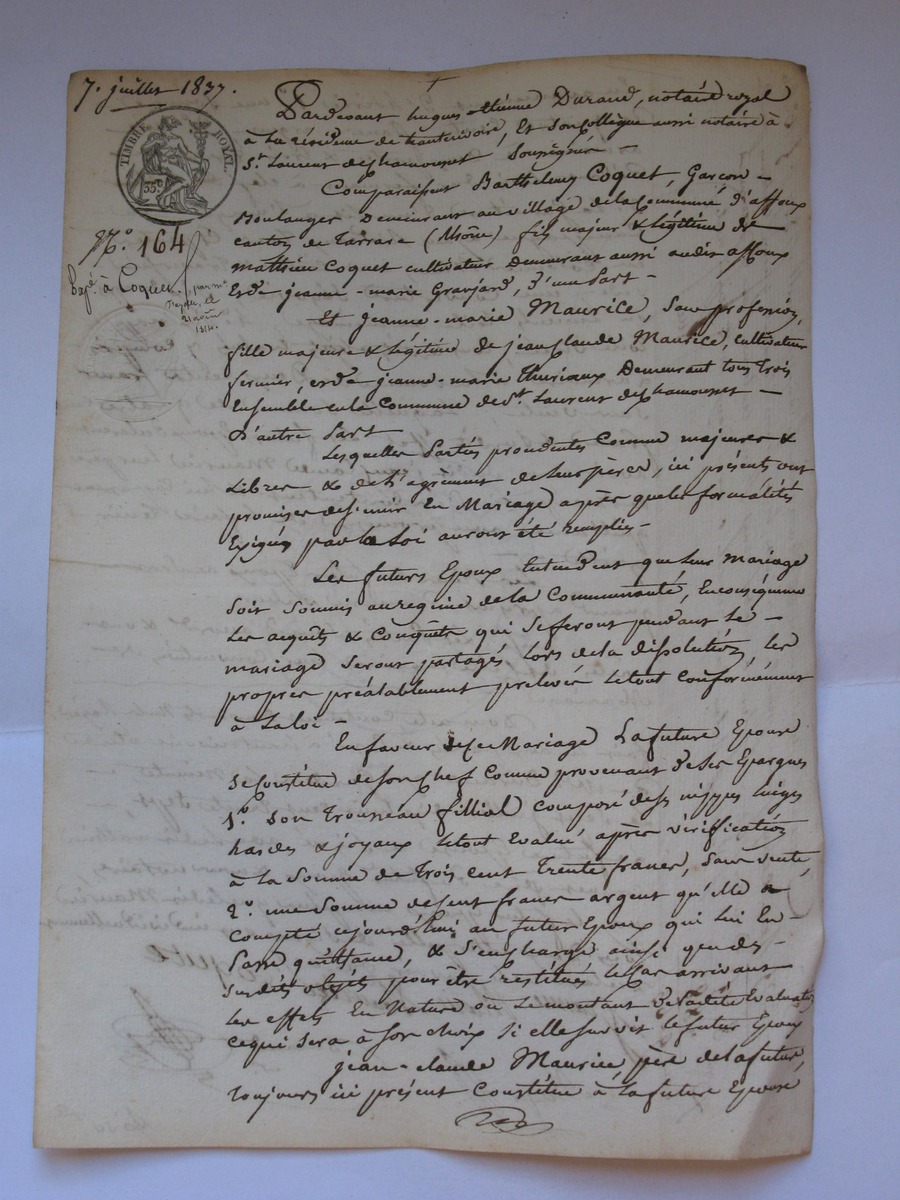 7. juillet 1837.
TIMBRE ROYAL
35c
N.o 164
Expé à Coquet
Pardevant hugues Etienne Durand, notaire royal
à La résidence de hauterivoire, Et son collègue aussi notaire à
St. Laurent de Chamousset soussignés —
Comparaissent Barthélemy Coquet, Garçon —
Boulanger Demeurant au village de la Commune d'affoux
canton de Tarrare (Rhône) fils majeur & légitime de
mathieu Coquet cultivateur Demeurant aussi audit affoux
Et de jeanne-marie Gravjard, D'une Part —
Et jeanne-marie Maurice, sans profession,
fille majeure & légitime de jean Claude Maurice, cultivateur
fermier, et de jeanne-marie Thuriaux Demeurant tous trois
Ensemble en la Commune de St. Laurent de Chamousset —
D'autre Part
Lesquelles Parties procedentes Comme majeures &
Libres & de l'agrément de leurs pères, ici présents ont
promises de s'unir En Mariage après que les formalités
Exigées par la Loi auront été remplies —
Les futurs Epoux Entendent que leur Mariage
soit soumis au regime de la Communauté, En conséquence
Les acquêts & Conquêts qui se feront pendant le —
mariage seront partagés lors de la dissolution, les
propres préalablement prélevés le tout Conformément
à La loi —
En faveur de ce Mariage La future Epouse
se Constitue de son Chef Comme provenant de ses Epargnes
1.o son Trousseau fillial composé de ses nippes linges
hardes & joyaux le tout Evalué après vérification
à la somme de Trois cent Trente francs, sans vente,
2.o une Somme de cent francs argent qu'elle a
Compté cejourd'hui au futur Epoux qui lui En —
Passe quittance, & s'en charge ainsi que des —
susdits objets pour être restitués le cas arrivant
Les effets En Nature où le montant de ladite Evaluation
ce qui sera à son choix si elle survit le futur Epoux
jean-claude Maurice, père de la future,
Toujours ici présent Constitue à la future Epouse